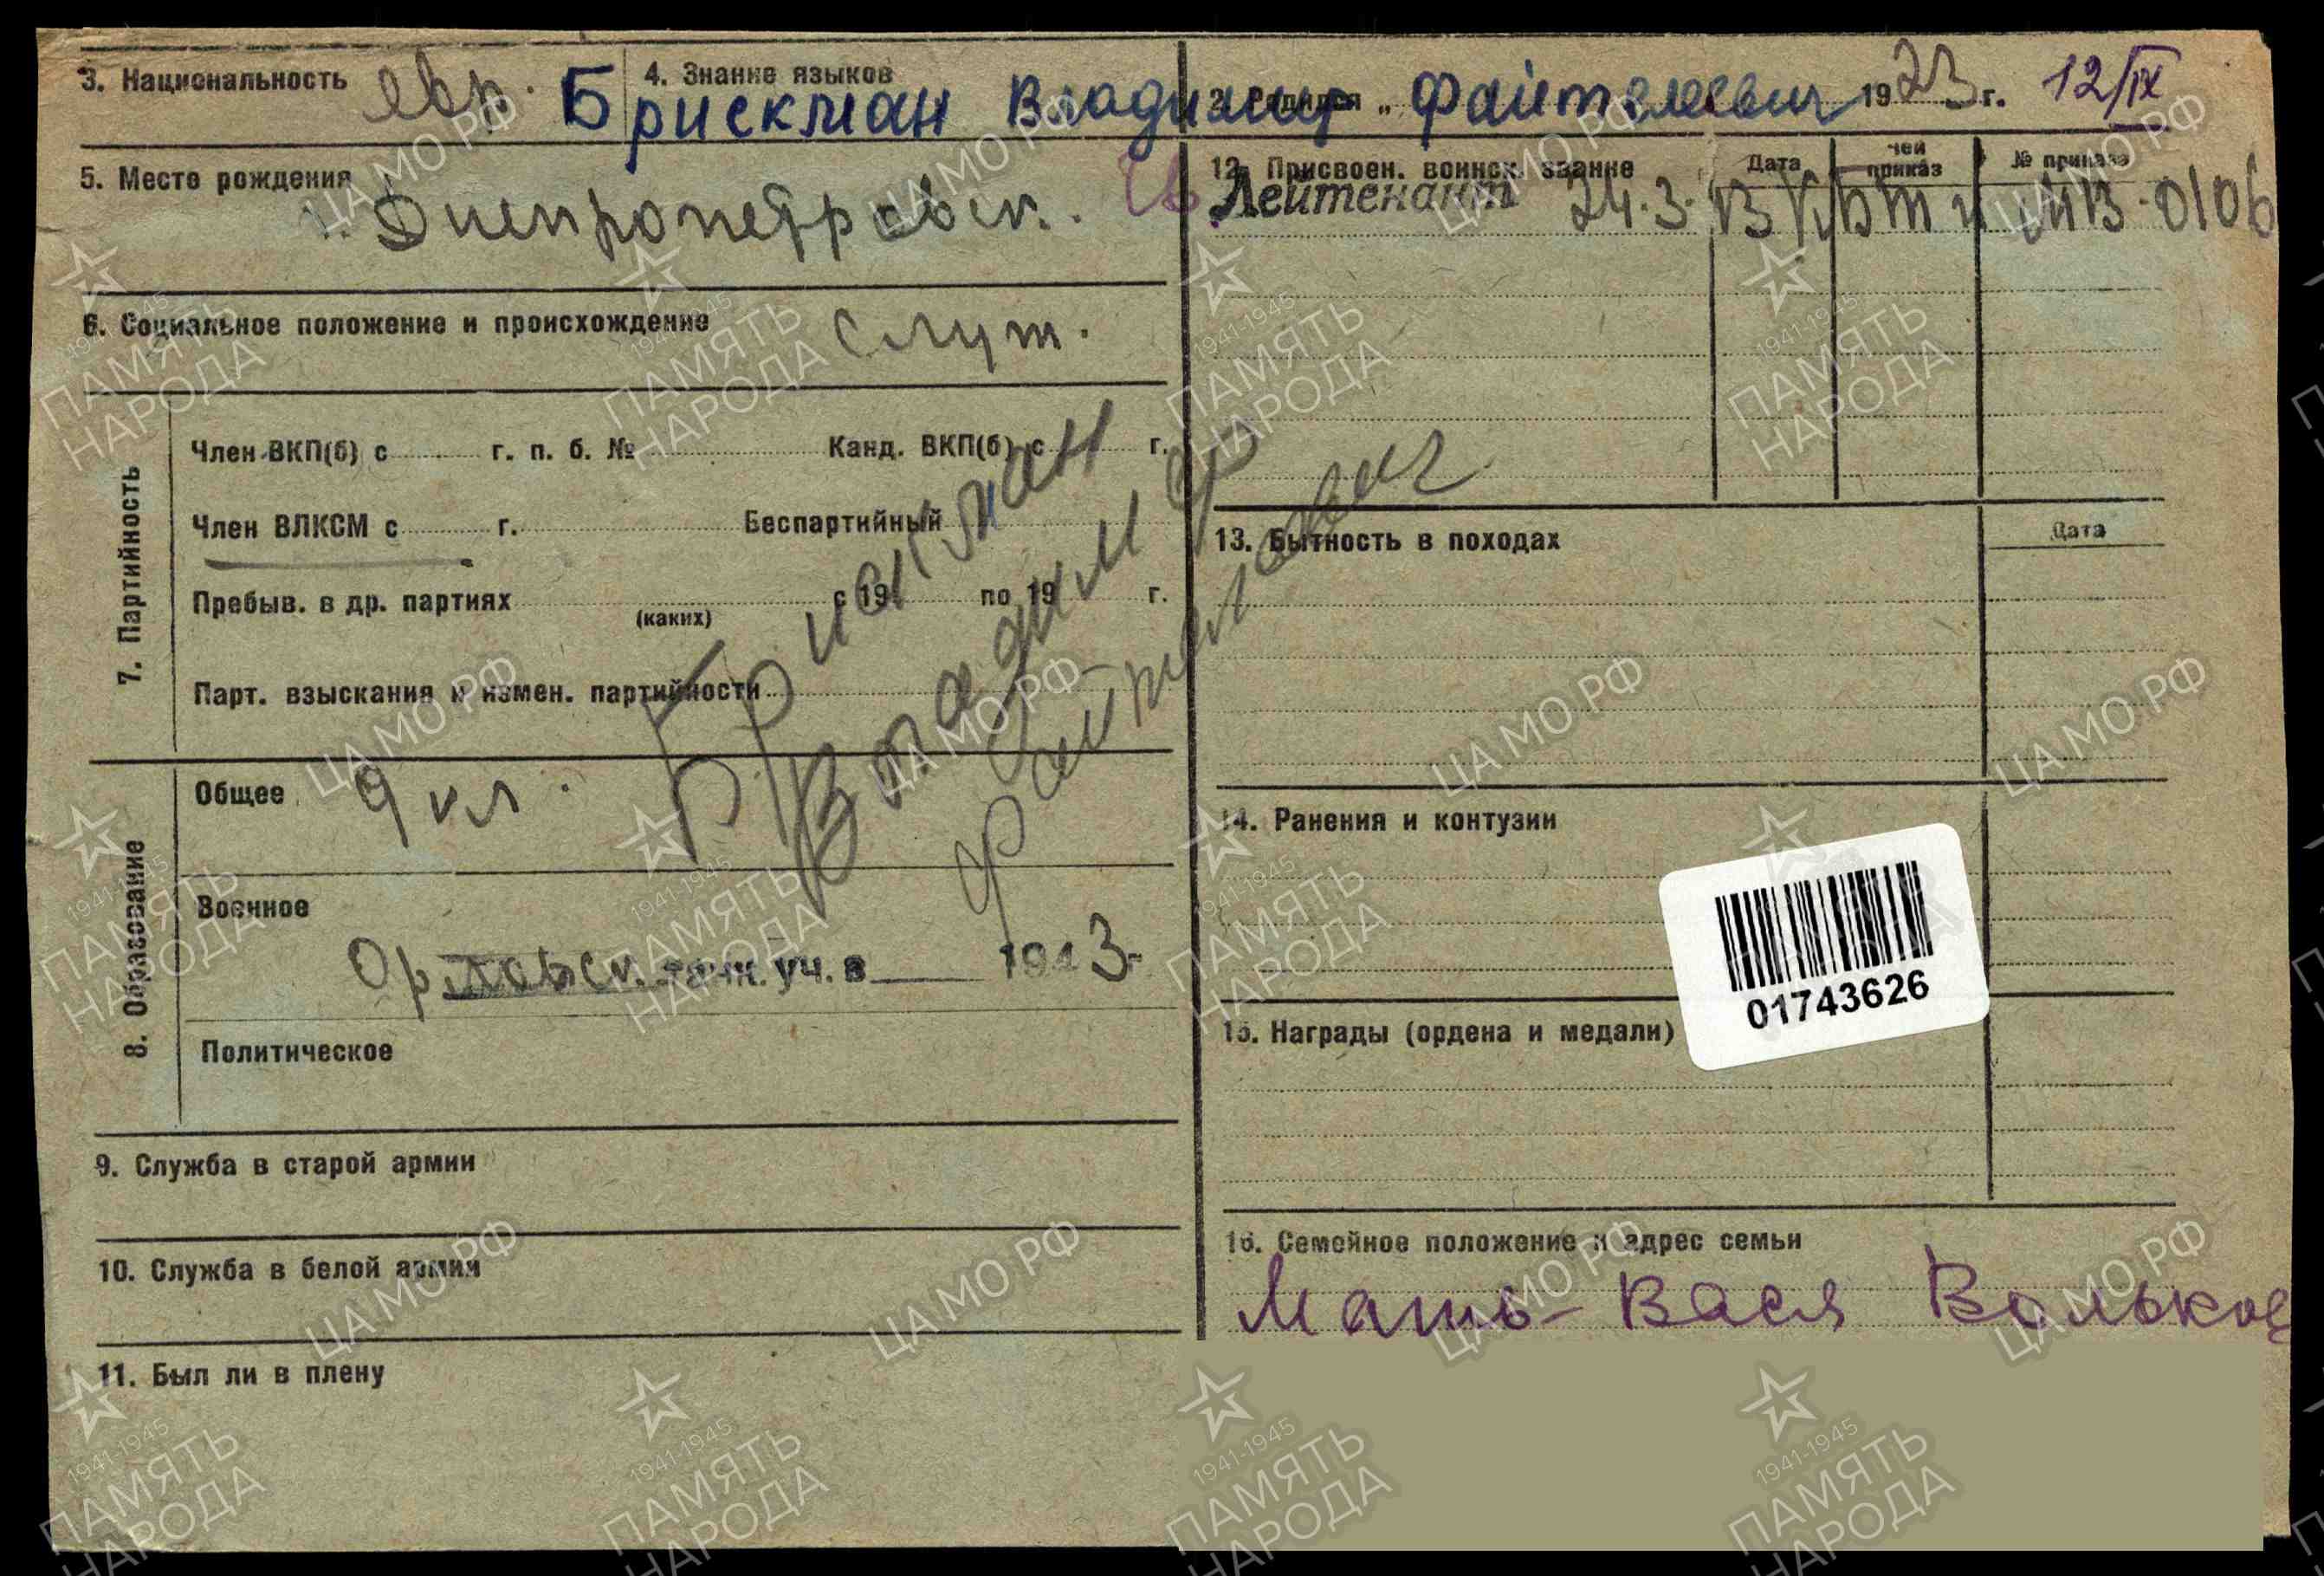 3. Национальность евр. 4. Знание языков
Брискман Владимир Файтелевич
2. Родился „ 1923 г. 12/IX
5. Место рождения
г. Днепропетровск.
6. Социальное положение и происхождение служ.
7. Партийность
Член ВКП(б) с г. п. б. № Канд. ВКП(б) с г.
Член ВЛКСМ с г. Беспартийный
Пребыв. в др. партиях с 19 по 19 г.
(каких)
Парт. взыскания и измен. партийности
Брискман
Владимир
Файтелевич
8. Образование
Общее 9 кл.
Военное
Орловск. танк. уч. в 1943
Политическое
9. Служба в старой армии
10. Служба в белой армии
11. Был ли в плену
12. Присвоен. воинск. звание Дата чей приказ № приказа
Лейтенант 24.3. 0106
13. Бытность в походах Дата
14. Ранения и контузии
01743626
15. Награды (ордена и медали)
16. Семейное положение и адрес семьи
Мать - Вася Вольков
ЦАМО РФ
1941-1945
ПАМЯТЬ
НАРОДА